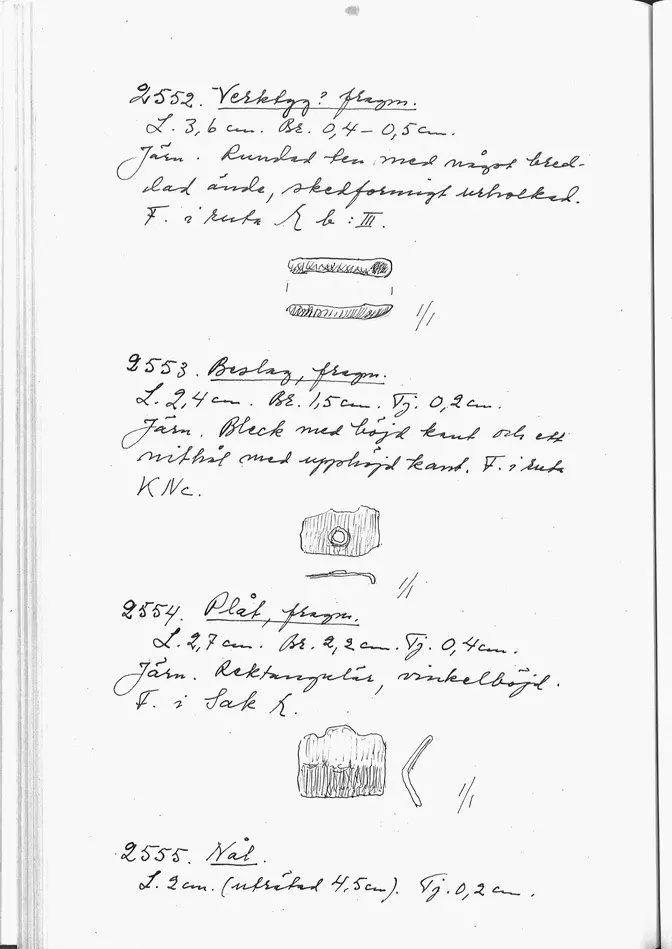 2552. Verktyg? fragm.
L. 3,6 cm. Br. 0,4 – 0,5 cm.
Järn. Rundad ten med något bred-
dad ände, skedformigt urholkad.
F. i ruta K b : III.
1/1
2553. Beslag, fragm.
L. 2,4 cm. Br. 1,5 cm. Tj. 0,2 cm.
Järn. Bleck med böjd kant och ett
nithål med upphöjd kant. F. i ruta
K N c.
1/1
2554. Plåt, fragm.
L. 2,7 cm. Br. 2,2 cm. Tj. 0,4 cm.
Järn. Rektangulär, vinkelböjd.
F. i Sak K.
1/1
2555. Nål.
L. 2 cm. (uträtad 4,5 cm). Tj. 0,2 cm.